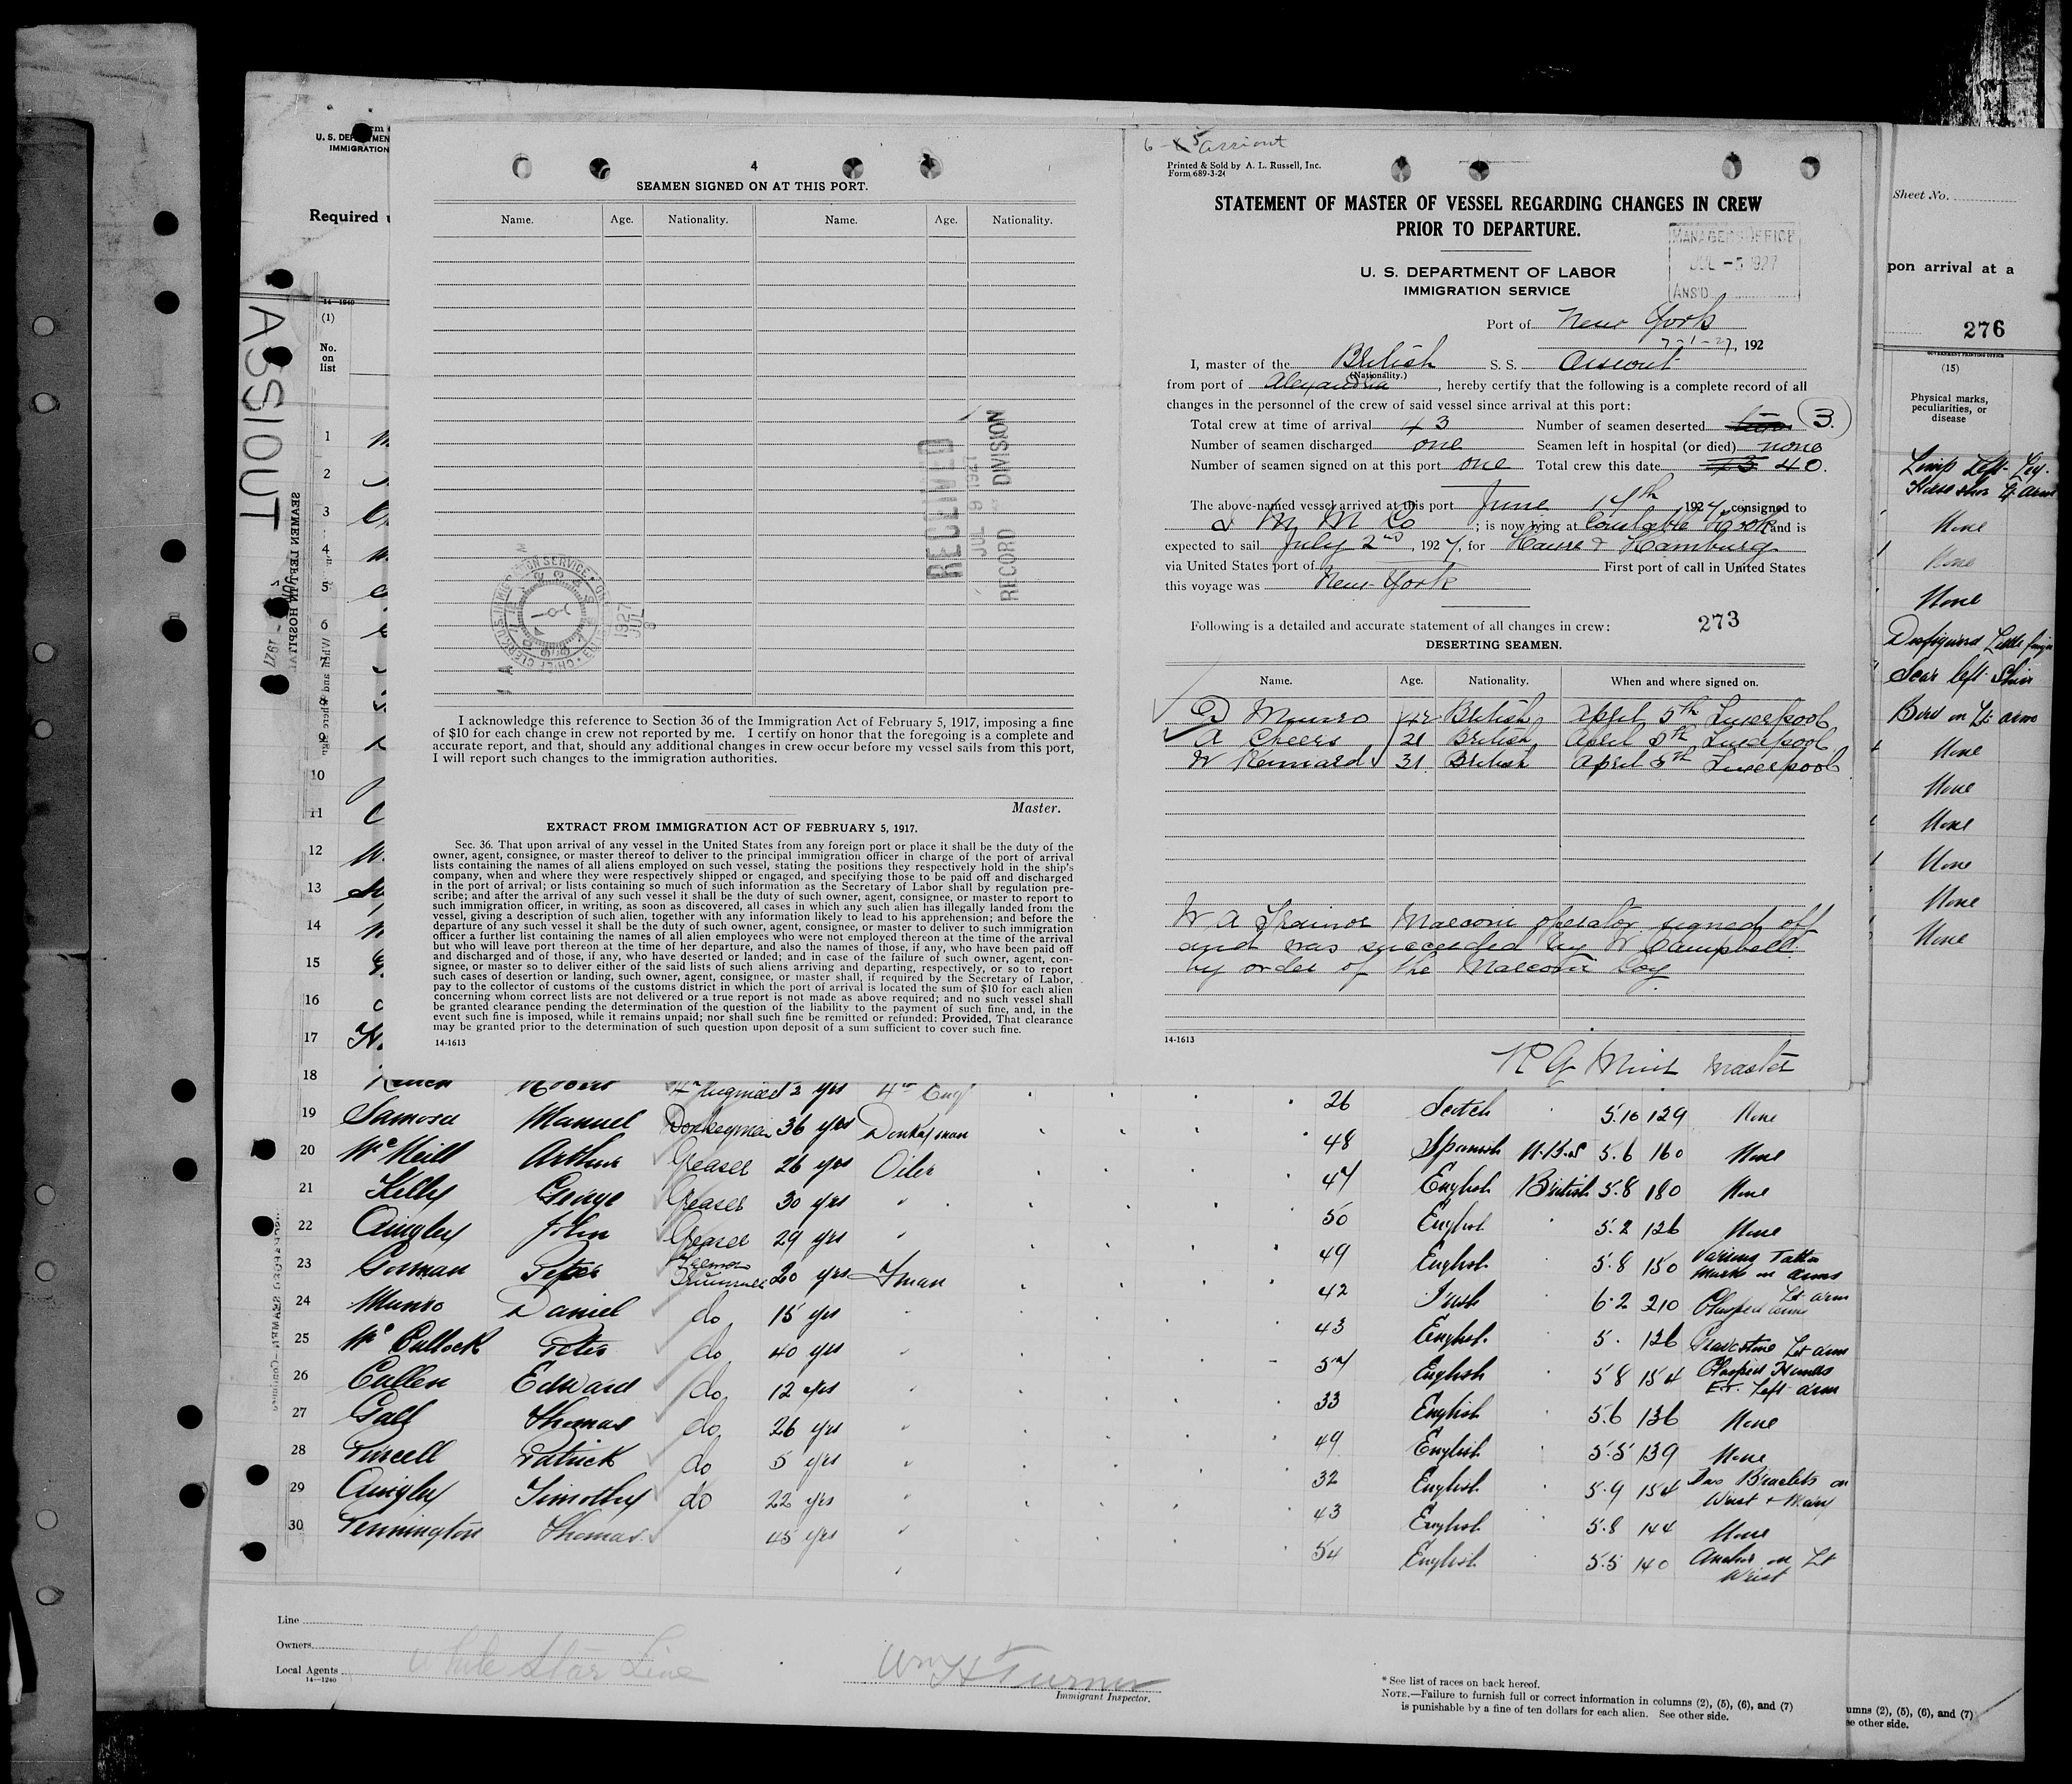 ASSIOUT
U. S. DEPARTMEN
IMMIGRATION
Required u
14-1240
(1)
No.
on
list
1
2
3
4
5
6
7
8
9
10
11
12
13
14
15
16
17
4
SEAMEN SIGNED ON AT THIS PORT.
Name. Age. Nationality. Name. Age. Nationality.
RECEIVED
JUL 9 1927
RECORD DIVISION
1927
JUL
8
I acknowledge this reference to Section 36 of the Immigration Act of February 5, 1917, imposing a fine
of $10 for each change in crew not reported by me. I certify on honor that the foregoing is a complete and
accurate report, and that, should any additional changes in crew occur before my vessel sails from this port,
I will report such changes to the immigration authorities.
Master.
EXTRACT FROM IMMIGRATION ACT OF FEBRUARY 5, 1917.
Sec. 36. That upon arrival of any vessel in the United States from any foreign port or place it shall be the duty of the
owner, agent, consignee, or master thereof to deliver to the principal immigration officer in charge of the port of arrival
lists containing the names of all aliens employed on such vessel, stating the positions they respectively hold in the ship's
company, when and where they were respectively shipped or engaged, and specifying those to be paid off and discharged
in the port of arrival; or lists containing so much of such information as the Secretary of Labor shall by regulation pre-
scribe; and after the arrival of any such vessel it shall be the duty of such owner, agent, consignee, or master to report to
such immigration officer, in writing, as soon as discovered, all cases in which any such alien has illegally landed from the
vessel, giving a description of such alien, together with any information likely to lead to his apprehension; and before the
departure of any such vessel it shall be the duty of such owner, agent, consignee, or master to deliver to such immigration
officer a further list containing the names of all alien employees who were not employed thereon at the time of the arrival
but who will leave port thereon at the time of her departure, and also the names of those, if any, who have been paid off
and discharged and of those, if any, who have deserted or landed; and in case of the failure of such owner, agent, con-
signee, or master so to deliver either of the said lists of such aliens arriving and departing, respectively, or so to report
such cases of desertion or landing, such owner, agent, consignee, or master, shall, if required by the Secretary of Labor,
pay to the collector of customs of the customs district in which the port of arrival is located the sum of $10 for each alien
concerning whom correct lists are not delivered or a true report is not made as above required; and no such vessel shall
be granted clearance pending the determination of the question of the liability to the payment of such fine, and, in the
event such fine is imposed, while it remains unpaid; nor shall such fine be remitted or refunded: Provided, That clearance
may be granted prior to the determination of such question upon deposit of a sum sufficient to cover such fine.
14-1613
Assiout
Printed & Sold by A. L. Russell, Inc.
Form 689-3-24
STATEMENT OF MASTER OF VESSEL REGARDING CHANGES IN CREW
PRIOR TO DEPARTURE.
MANAGER'S OFFICE
JUL -5 1927
ANS'D
U. S. DEPARTMENT OF LABOR
IMMIGRATION SERVICE
Port of New York
7-1-27, 192
I, master of the British S. S. Assiout
(Nationality.)
from port of Alexandria, hereby certify that the following is a complete record of all
changes in the personnel of the crew of said vessel since arrival at this port:
Total crew at time of arrival 43 Number of seamen deserted 3.
Number of seamen discharged one Seamen left in hospital (or died) none
Number of seamen signed on at this port one Total crew this date 43 40.
The above-named vessel arrived at this port June 17th 1927, consigned to
I M M Co; is now lying at Constable Hook and is
expected to sail July 2nd, 1927, for Havre & Hamburg
via United States port of First port of call in United States
this voyage was New York
Following is a detailed and accurate statement of all changes in crew: 273
DESERTING SEAMEN.
Name. Age. Nationality. When and where signed on.
D Munro 42 British April 5th Liverpool
A Cheers 21 British April 5th Liverpool
W Kennard 31 British April 5th Liverpool
W A Trainor Marconi operator signed off
and was succeeded by W Campbell
by order of the Marconi Coy.
14-1613
R G Master
Sheet No.
pon arrival at a
276
(15)
Physical marks,
peculiarities, or
disease
Limp Left Leg.
None
None
None
Disfigured Little finger
Scar left Shin
Bird on Lt arm
None
None
None
None
None
None
18 Robert 4th Eng 26 Scotch 5.10 129 None
19 Samosa Manuel Donkeyman 36 yrs Donkeyman 48 Spanish 5.6 160 None
20 McNeill Arthur Greaser 26 yrs Oiler 47 English British 5.8 180 None
21 Kelly George Greaser 30 yrs " 50 English 5.2 126 None
22 Quigley John Greaser 29 yrs " 49 English 5.8 150 Various Tattoo Marks on arms
23 Gorman Peter Fireman Trimmer 20 yrs Fman 42 Irish 6.2 210 Clasped arms Lt arm
24 Munro Daniel do 15 yrs 43 English 5. 126 Gravestone Lt arm
25 McCullock Peter do 40 yrs " 57 English 5 8 154 Clasped Hands Left arm
26 Cullen Edward do 12 yrs " 33 English 5.6 136 None
27 Galt Thomas do 26 yrs " 49 English 5.5 139 None
28 Purcell Patrick do 5 yrs " 32 English 5.9 154 Two Bracelets on Wrist + Mary
29 Quigley Timothy do 22 yrs " 43 English 5.8 144 None
30 Pennington Thomas 45 yrs " 54 English 5.5 140 Anchor on Lt Wrist
Line
Owners
Local Agents White Star Line
14-1240
Wm H Turner
Immigrant Inspector.
* See list of races on back hereof.
NOTE.—Failure to furnish full or correct information in columns (2), (5), (6), and (7)
is punishable by a fine of ten dollars for each alien. See other side.
umns (2), (5), (6), and (7)
ee other side.